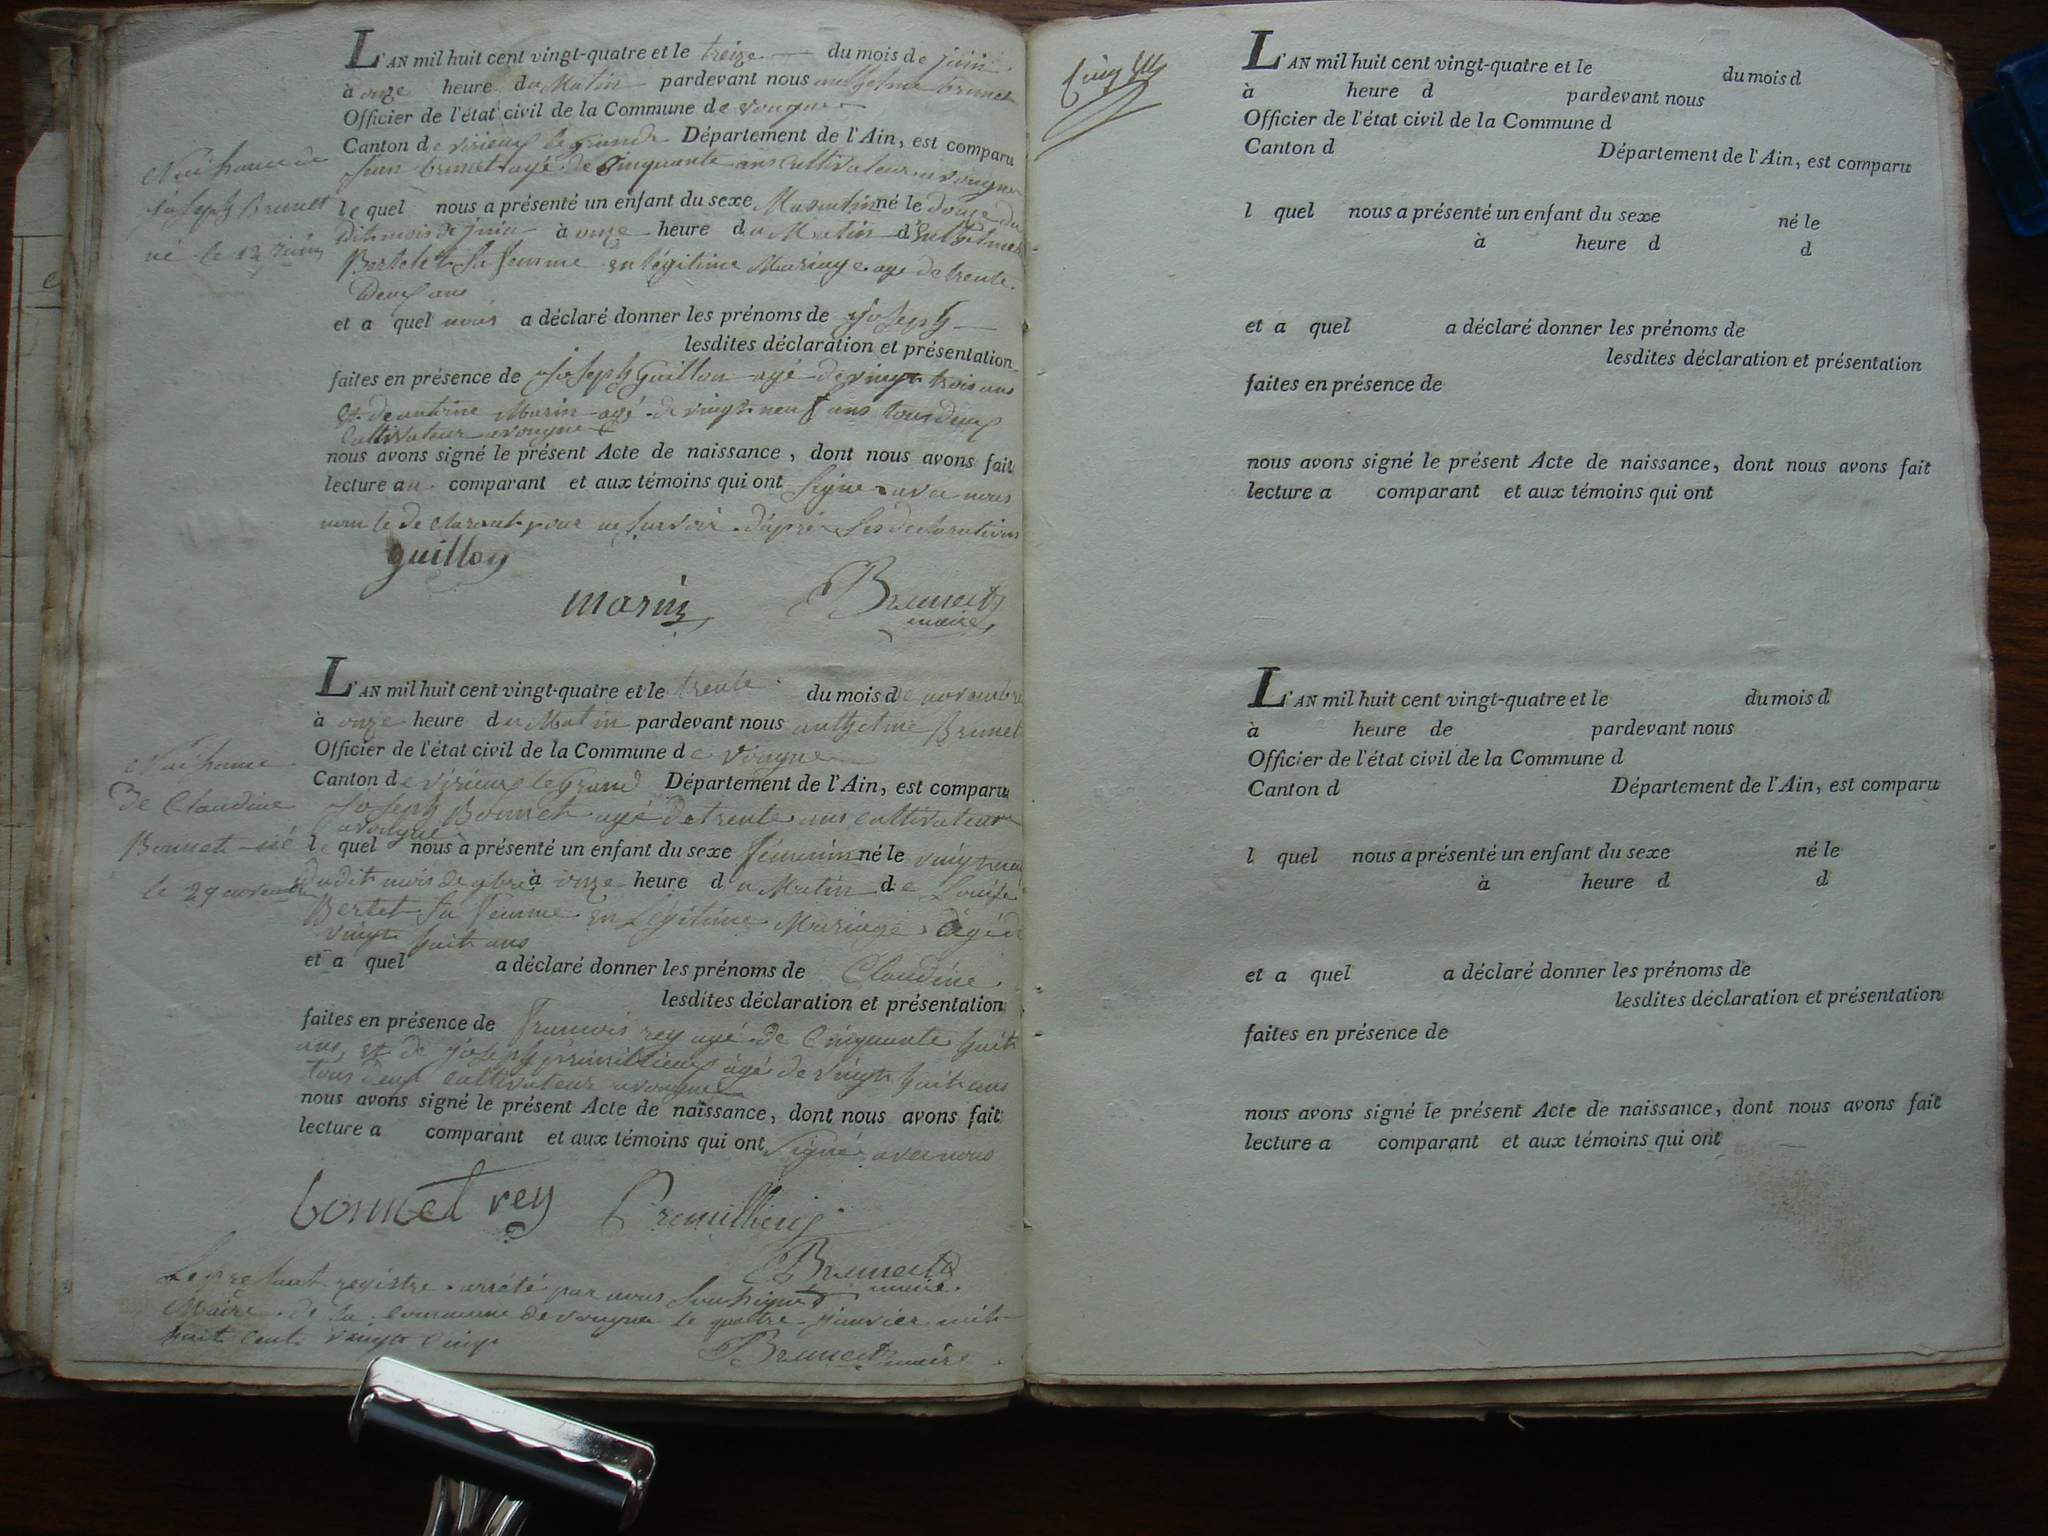 L'AN mil huit cent vingt-quatre et le treize du mois de juin
à onze heure du Matin pardevant nous anthelme brunet
Officier de l'état civil de la Commune de vongne
Canton de virieux le grand Département de l'Ain, est comparu
jean brunet agé de cinquante ans cultivateur a vongne
Naissance de
joseph Brunet
né le 12 juin
le quel nous a présenté un enfant du sexe Masculin né le douze du
dit mois de juin à onze heure du Matin d'anthelmete
Bertelet sa femme en légitime Mariage age de trente
deux ans
et a quel nous a déclaré donner les prénoms de joseph
lesdites déclaration et présentation
faites en présence de joseph Guillon agé de vingt trois ans
et de antoine Marin agé de vingt neuf ans tous deux
cultivateur a vongne
nous avons signé le présent Acte de naissance, dont nous avons fait
lecture au comparant et aux témoins qui ont signe avec nous
non le de clarant pour ne savoir d'aprés ses declarations
guillon
marin
Brunet
maire
L'AN mil huit cent vingt-quatre et le trente du mois de novembre
à onze heure du Matin pardevant nous anthelme Brunet
Officier de l'état civil de la Commune de vongne
Canton de virieux le Grand Département de l'Ain, est comparu
joseph Bonnet agé de trente ans cultivateur
a vongne
Naissance
de Claudine
Bonnet né
le 29 novembre
le quel nous a présenté un enfant du sexe féminin né le vingt neuf
dudit mois de 9bre à onze heure du Matin de Louise
Bertet sa femme en Légitime Mariage agé de
vingt huit ans
et a quel a déclaré donner les prénoms de Claudine
lesdites déclaration et présentation
faites en présence de francois rey agé de cinquante huit
ans et de joseph primillieux agé de vingt huit ans
tous deux cultivateur a vongne
nous avons signé le présent Acte de naissance, dont nous avons fait
lecture a comparant et aux témoins qui ont signé avec nous
bonnet rey Premillieux
Brunet
maire
Le present registre arrété par nous soussigné
Maire de la commune de vongne le quattre janvier mil
huit cent vingt cinq
Brunet maire
L'AN mil huit cent vingt-quatre et le du mois d
à heure d pardevant nous
Officier de l'état civil de la Commune d
Canton d Département de l'Ain, est comparu
l quel nous a présenté un enfant du sexe né le
à heure d d
et a quel a déclaré donner les prénoms de
lesdites déclaration et présentation
faites en présence de
nous avons signé le présent Acte de naissance, dont nous avons fait
lecture a comparant et aux témoins qui ont
L'AN mil huit cent vingt-quatre et le du mois d
à heure de pardevant nous
Officier de l'état civil de la Commune d
Canton d Département de l'Ain, est comparu
l quel nous a présenté un enfant du sexe né le
à heure d d
et a quel a déclaré donner les prénoms de
lesdites déclaration et présentation
faites en présence de
nous avons signé le présent Acte de naissance, dont nous avons fait
lecture a comparant et aux témoins qui ont